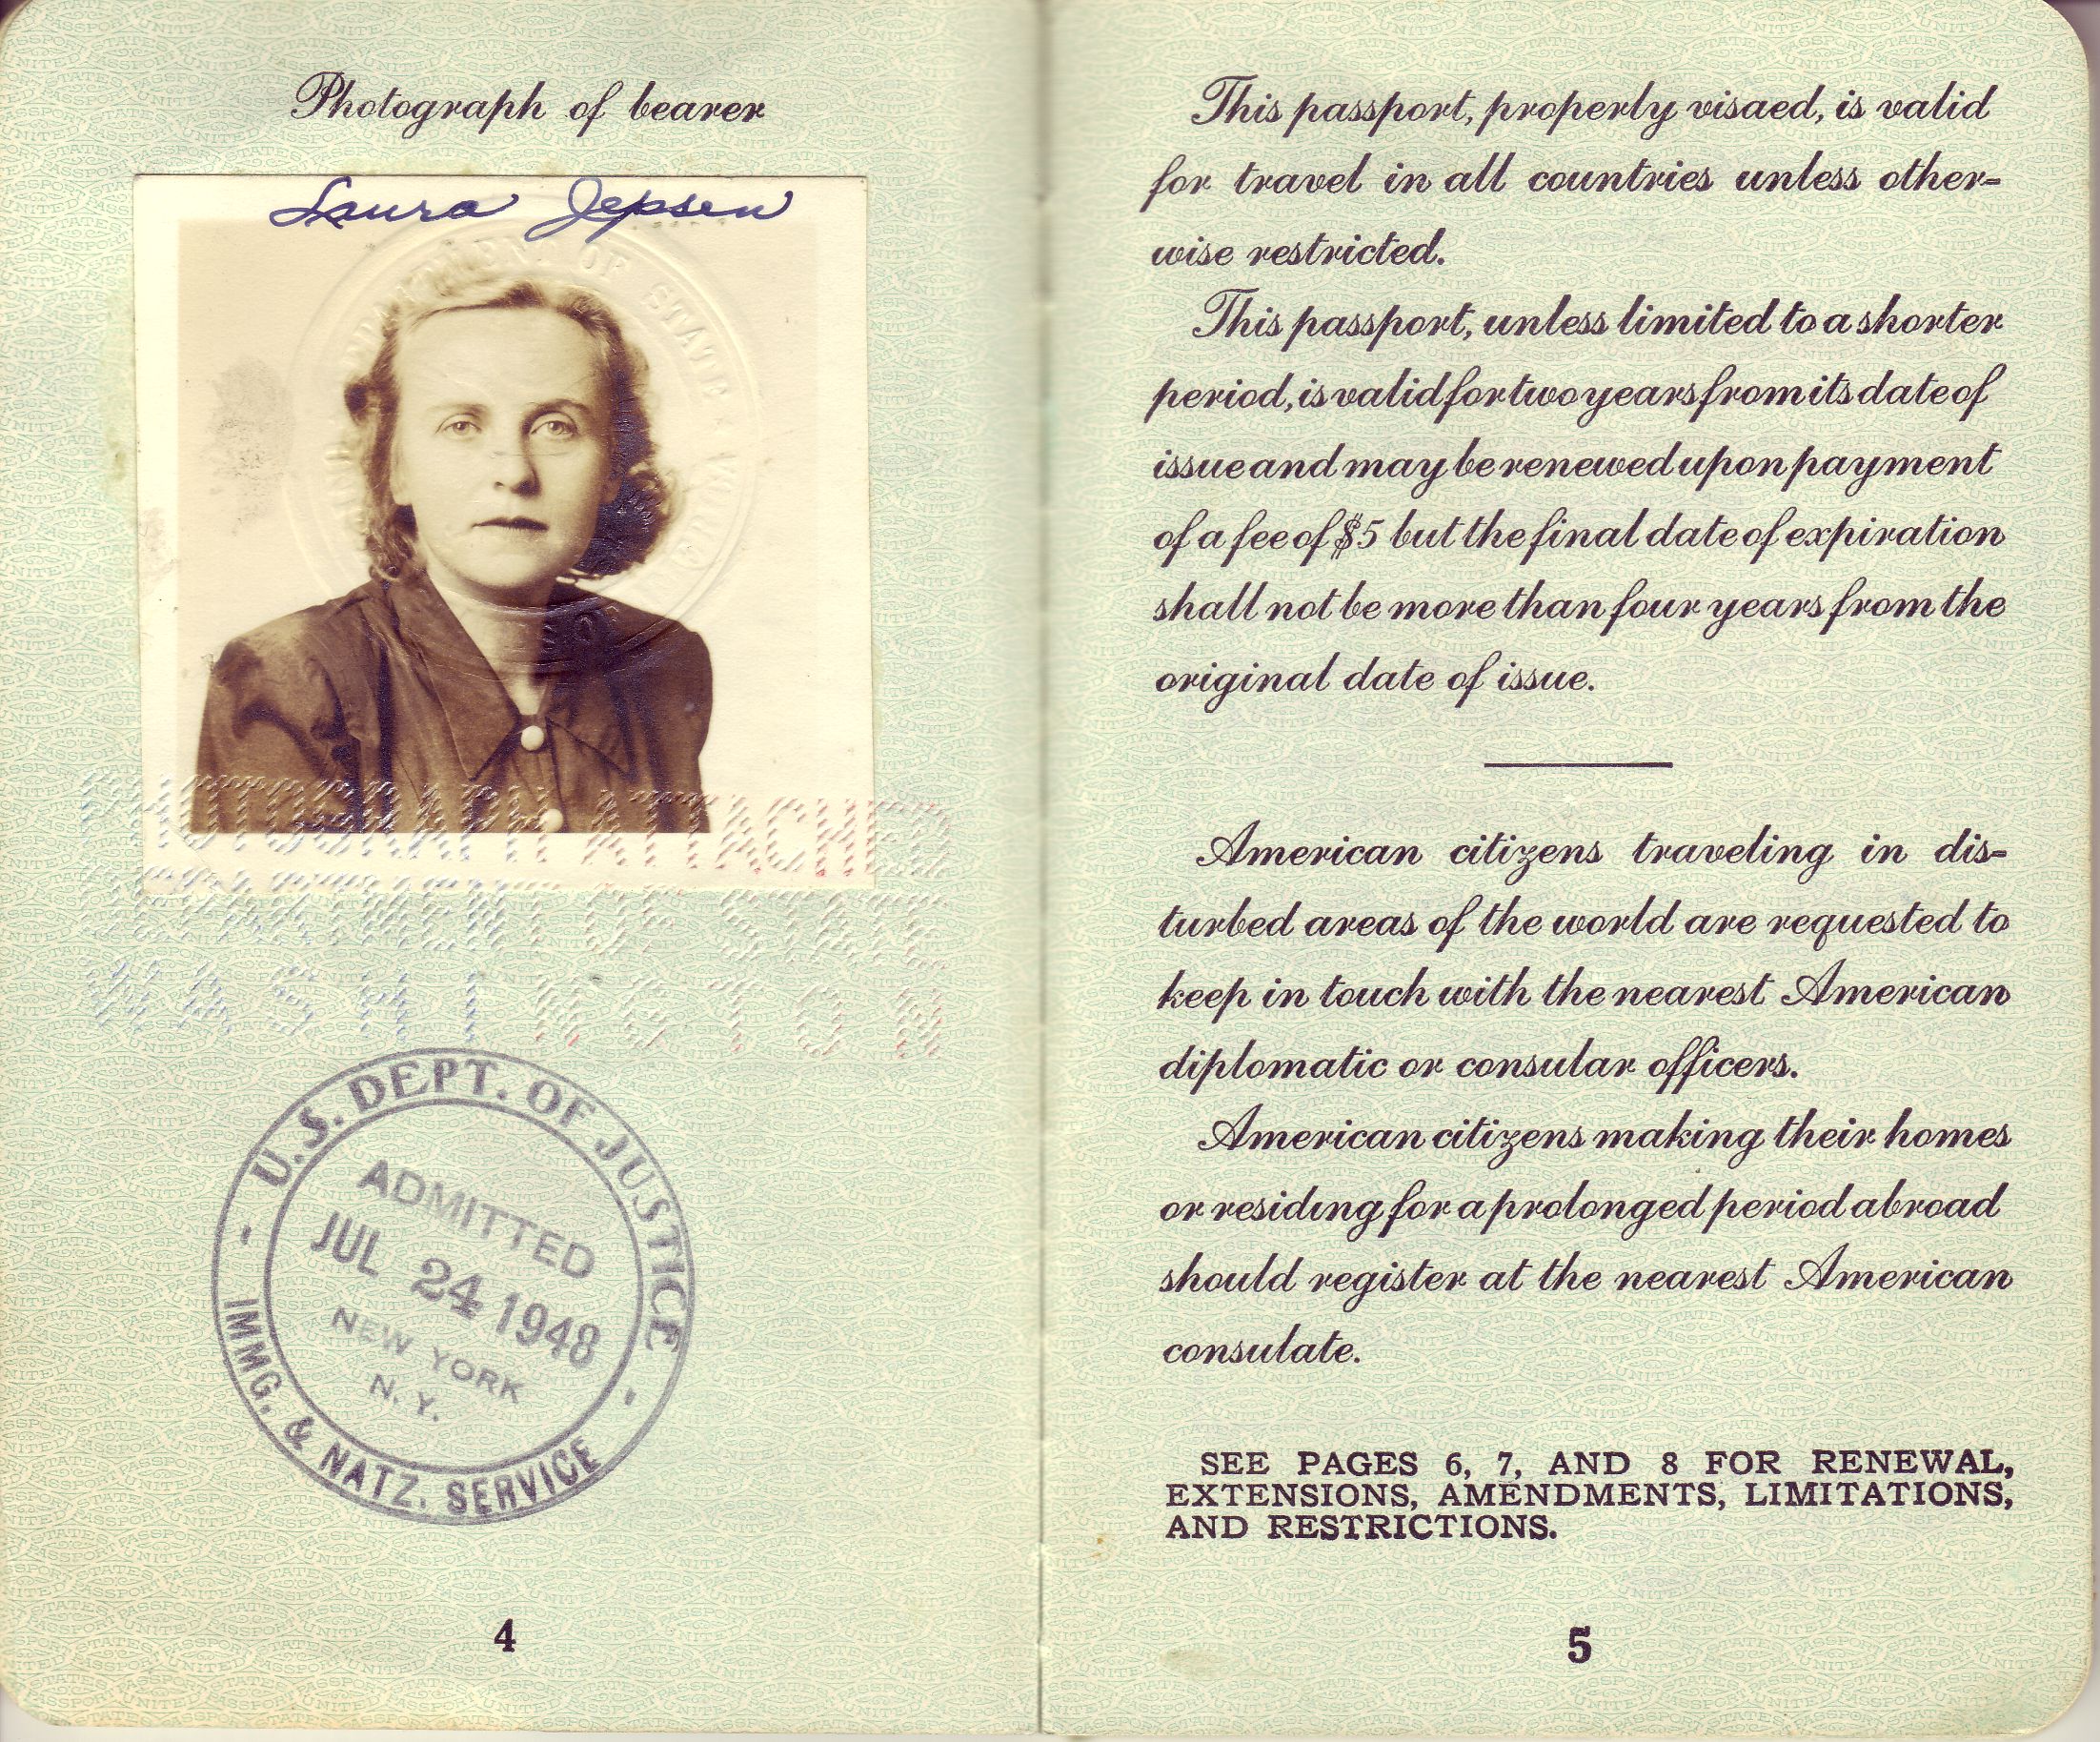 Photograph of bearer
Laura Jepsen
PHOTOGRAPH ATTACHED
DEPARTMENT OF STATE
WASHINGTON
U.S. DEPT. OF JUSTICE
ADMITTED
JUL 24 1948
NEW YORK
N. Y.
IMMG. & NATZ. SERVICE
4
This passport, properly visaed, is valid
for travel in all countries unless other-
wise restricted.
This passport, unless limited to a shorter
period, is valid for two years from its date of
issue and may be renewed upon payment
of a fee of $5 but the final date of expiration
shall not be more than four years from the
original date of issue.
American citizens traveling in dis-
turbed areas of the world are requested to
keep in touch with the nearest American
diplomatic or consular officers.
American citizens making their homes
or residing for a prolonged period abroad
should register at the nearest American
consulate.
SEE PAGES 6, 7, AND 8 FOR RENEWAL,
EXTENSIONS, AMENDMENTS, LIMITATIONS,
AND RESTRICTIONS.
5